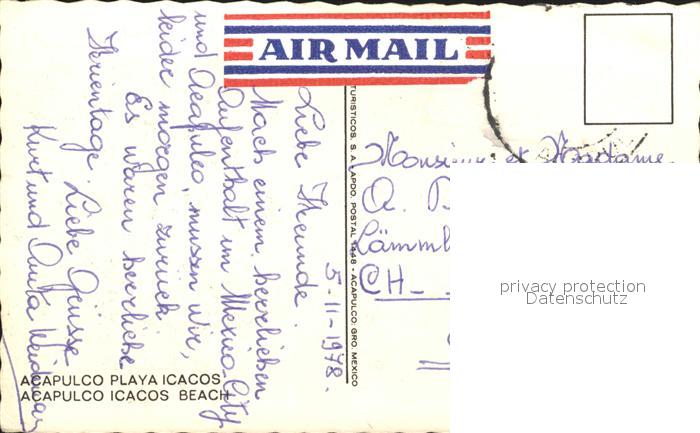 AIR MAIL
5-11-1978.
Liebe Freunde.
Nach einem herrlichen
Aufenthalt im Mexico-City
und Acapulco, mussen wir,
leider morgen zurück.
Es waren herrliche
Ferientage. Liebe Grüsse
Kurt und Anita
TURISTICOS, S. A. APDO. POSTAL 1448 - ACAPULCO, GRO. MEXICO
Monsieur et Madame
A. B
Lämml
CH-
privacy protection
Datenschutz
ACAPULCO PLAYA ICACOS
ACAPULCO ICACOS BEACH